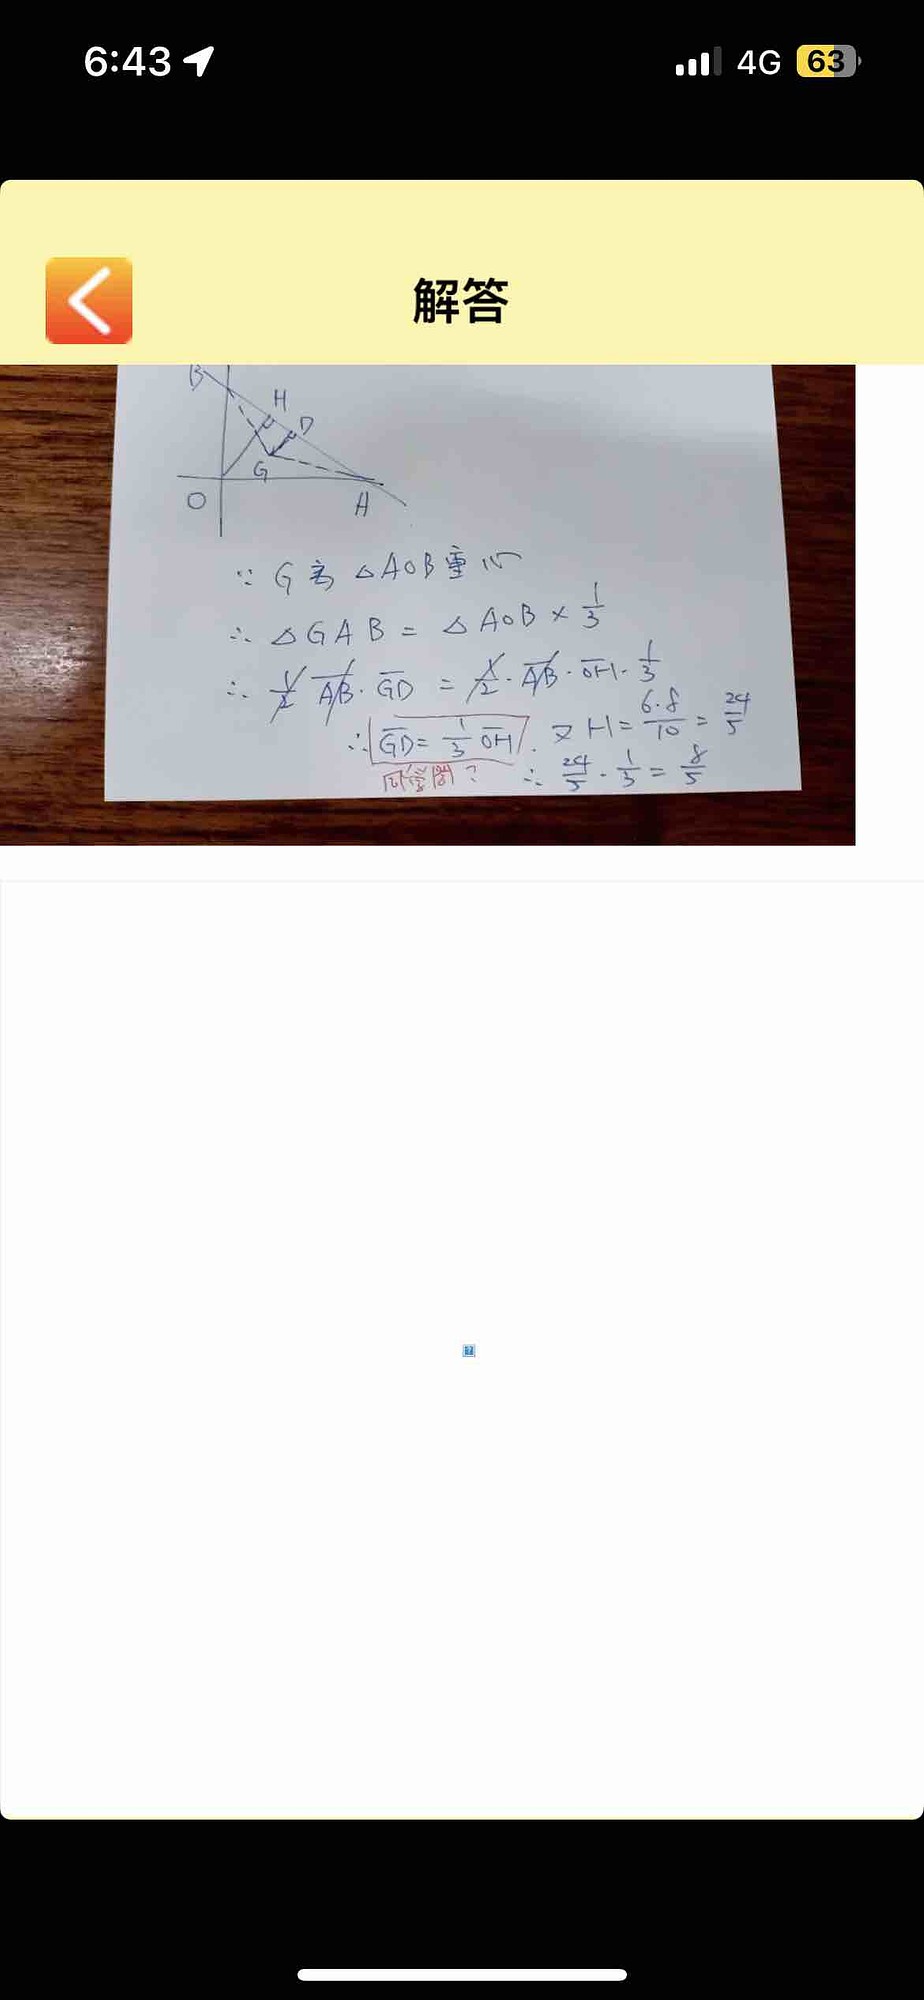 6:43
4G 63
解答
B
H
D
G
O
A
∵ G為△AOB重心
∴ △GAB = △AOB × 1/3
∴ 1/2 AB · GD = 1/2 · AB · OH · 1/3
∴ GD = 1/3 OH . 又 H = 6·8/10 = 24/5
? ∴ 24/5 · 1/3 = 8/5